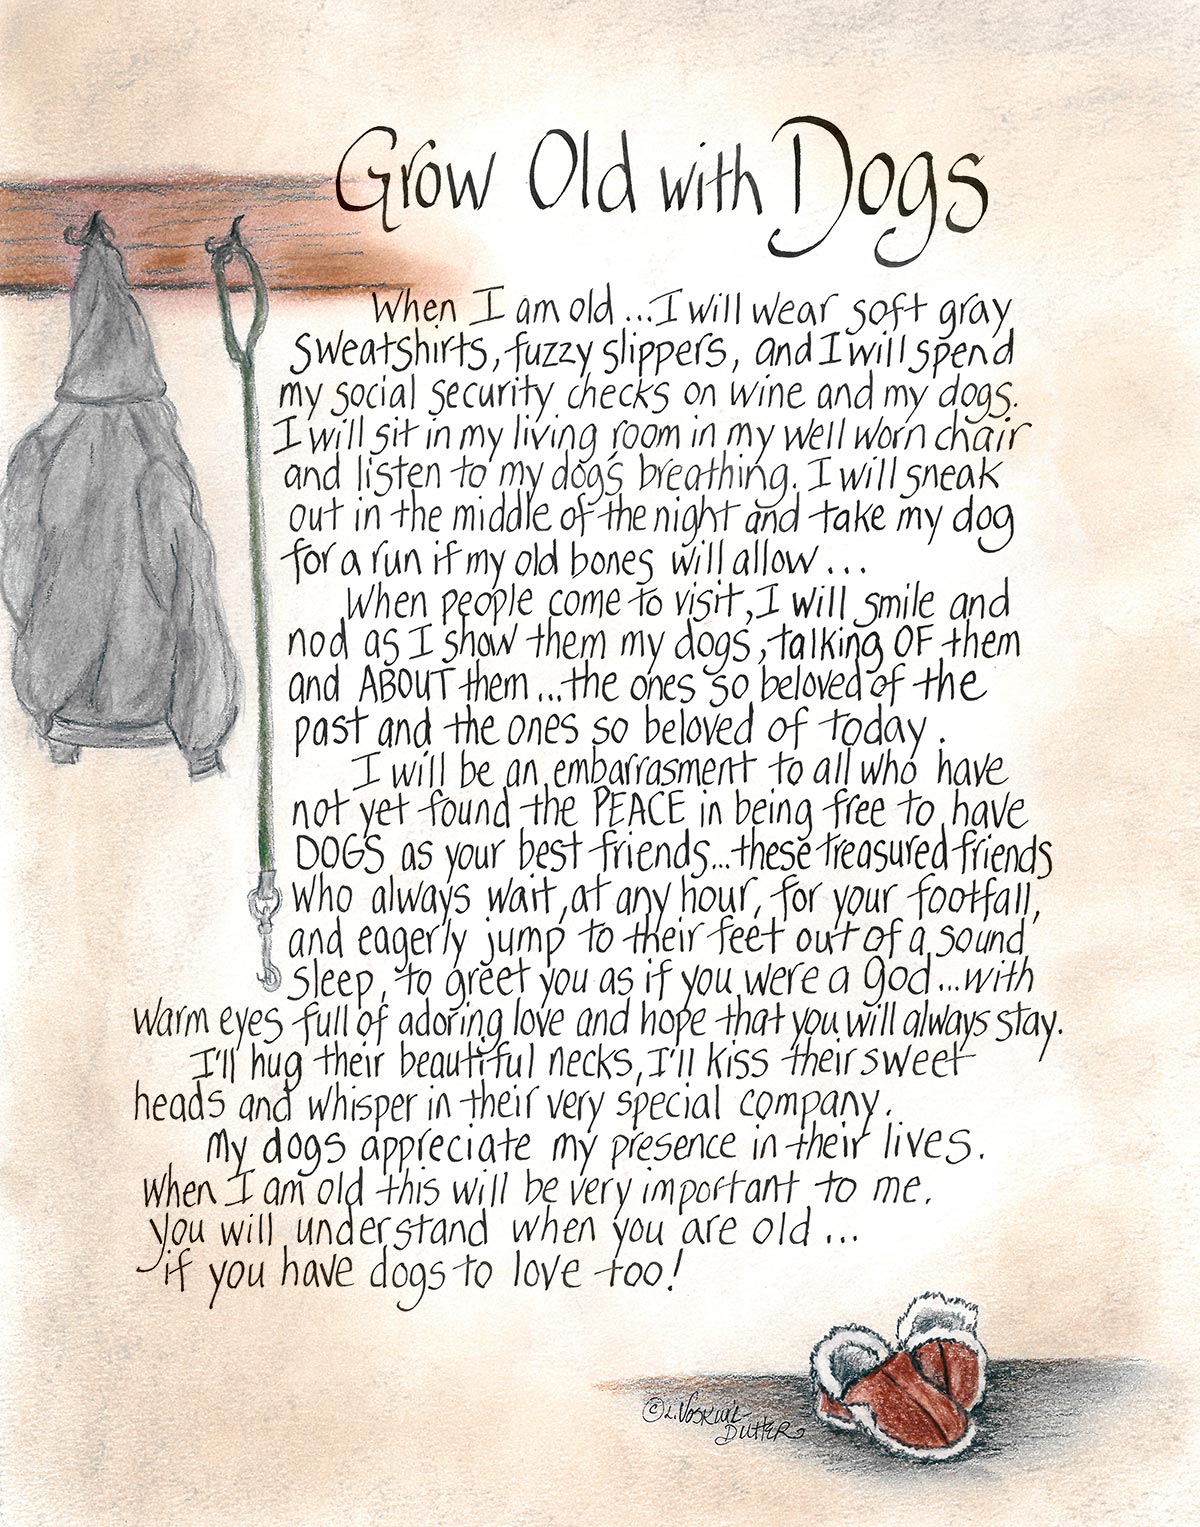 Grow Old with Dogs
When I am old...I will wear soft gray
sweatshirts, fuzzy slippers, and I will spend
my social security checks on wine and my dogs.
I will sit in my living room in my well worn chair
and listen to my dog's breathing. I will sneak
out in the middle of the night and take my dog
for a run if my old bones will allow...
When people come to visit, I will smile and
nod as I show them my dogs, talking OF them
and ABOUT them...the ones so beloved of the
past and the ones so beloved of today.
I will be an embarrasment to all who have
not yet found the PEACE in being free to have
DOGS as your best friends...these treasured friends
who always wait, at any hour, for your footfall,
and eagerly jump to their feet out of a sound
sleep, to greet you as if you were a god...with
warm eyes full of adoring love and hope that you will always stay.
I'll hug their beautiful necks, I'll kiss their sweet
heads and whisper in their very special company.
My dogs appreciate my presence in their lives.
When I am old this will be very important to me.
You will understand when you are old...
if you have dogs to love too!
© L. Voskuil
Dutter